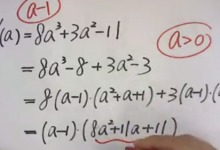 a-1
(a) = 8a³+3a²-11
a>0
= 8a³-8+3a²-3
= 8(a-1)·(a²+a+1)+3(a-1)·(a
= (a-1)·(8a²+11a+11)